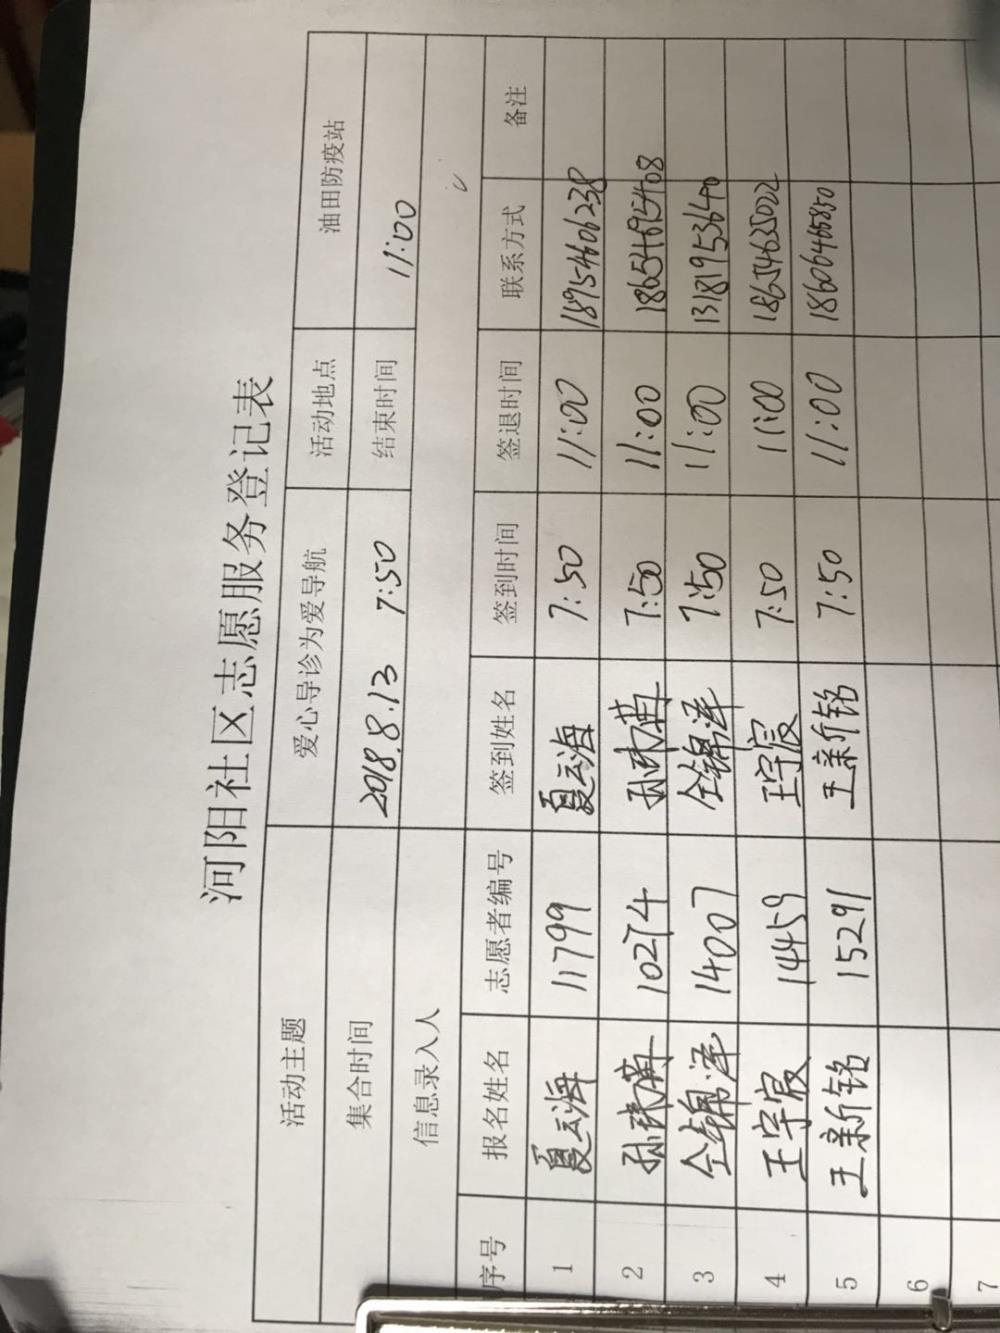 河阳社区志愿服务登记表
活动主题 爱心导诊为爱导航 活动地点 油田防疫站
集合时间 2018.8.13 7:50 结束时间 11:00
信息录入人
序号 报名姓名 志愿者编号 签到姓名 签到时间 签退时间 联系方式 备注
1 夏云海 11799 夏云海 7:50 11:00 18954606238
2 10274 7:50 11:00 18654695408
3 仝锦泽 14007 仝锦泽 7:50 11:00 13181953640
4 王宇宸 14459 王宇宸 7:50 11:00 18654635022
5 王新铭 15291 王新铭 7:50 11:00 18606466850
6
7